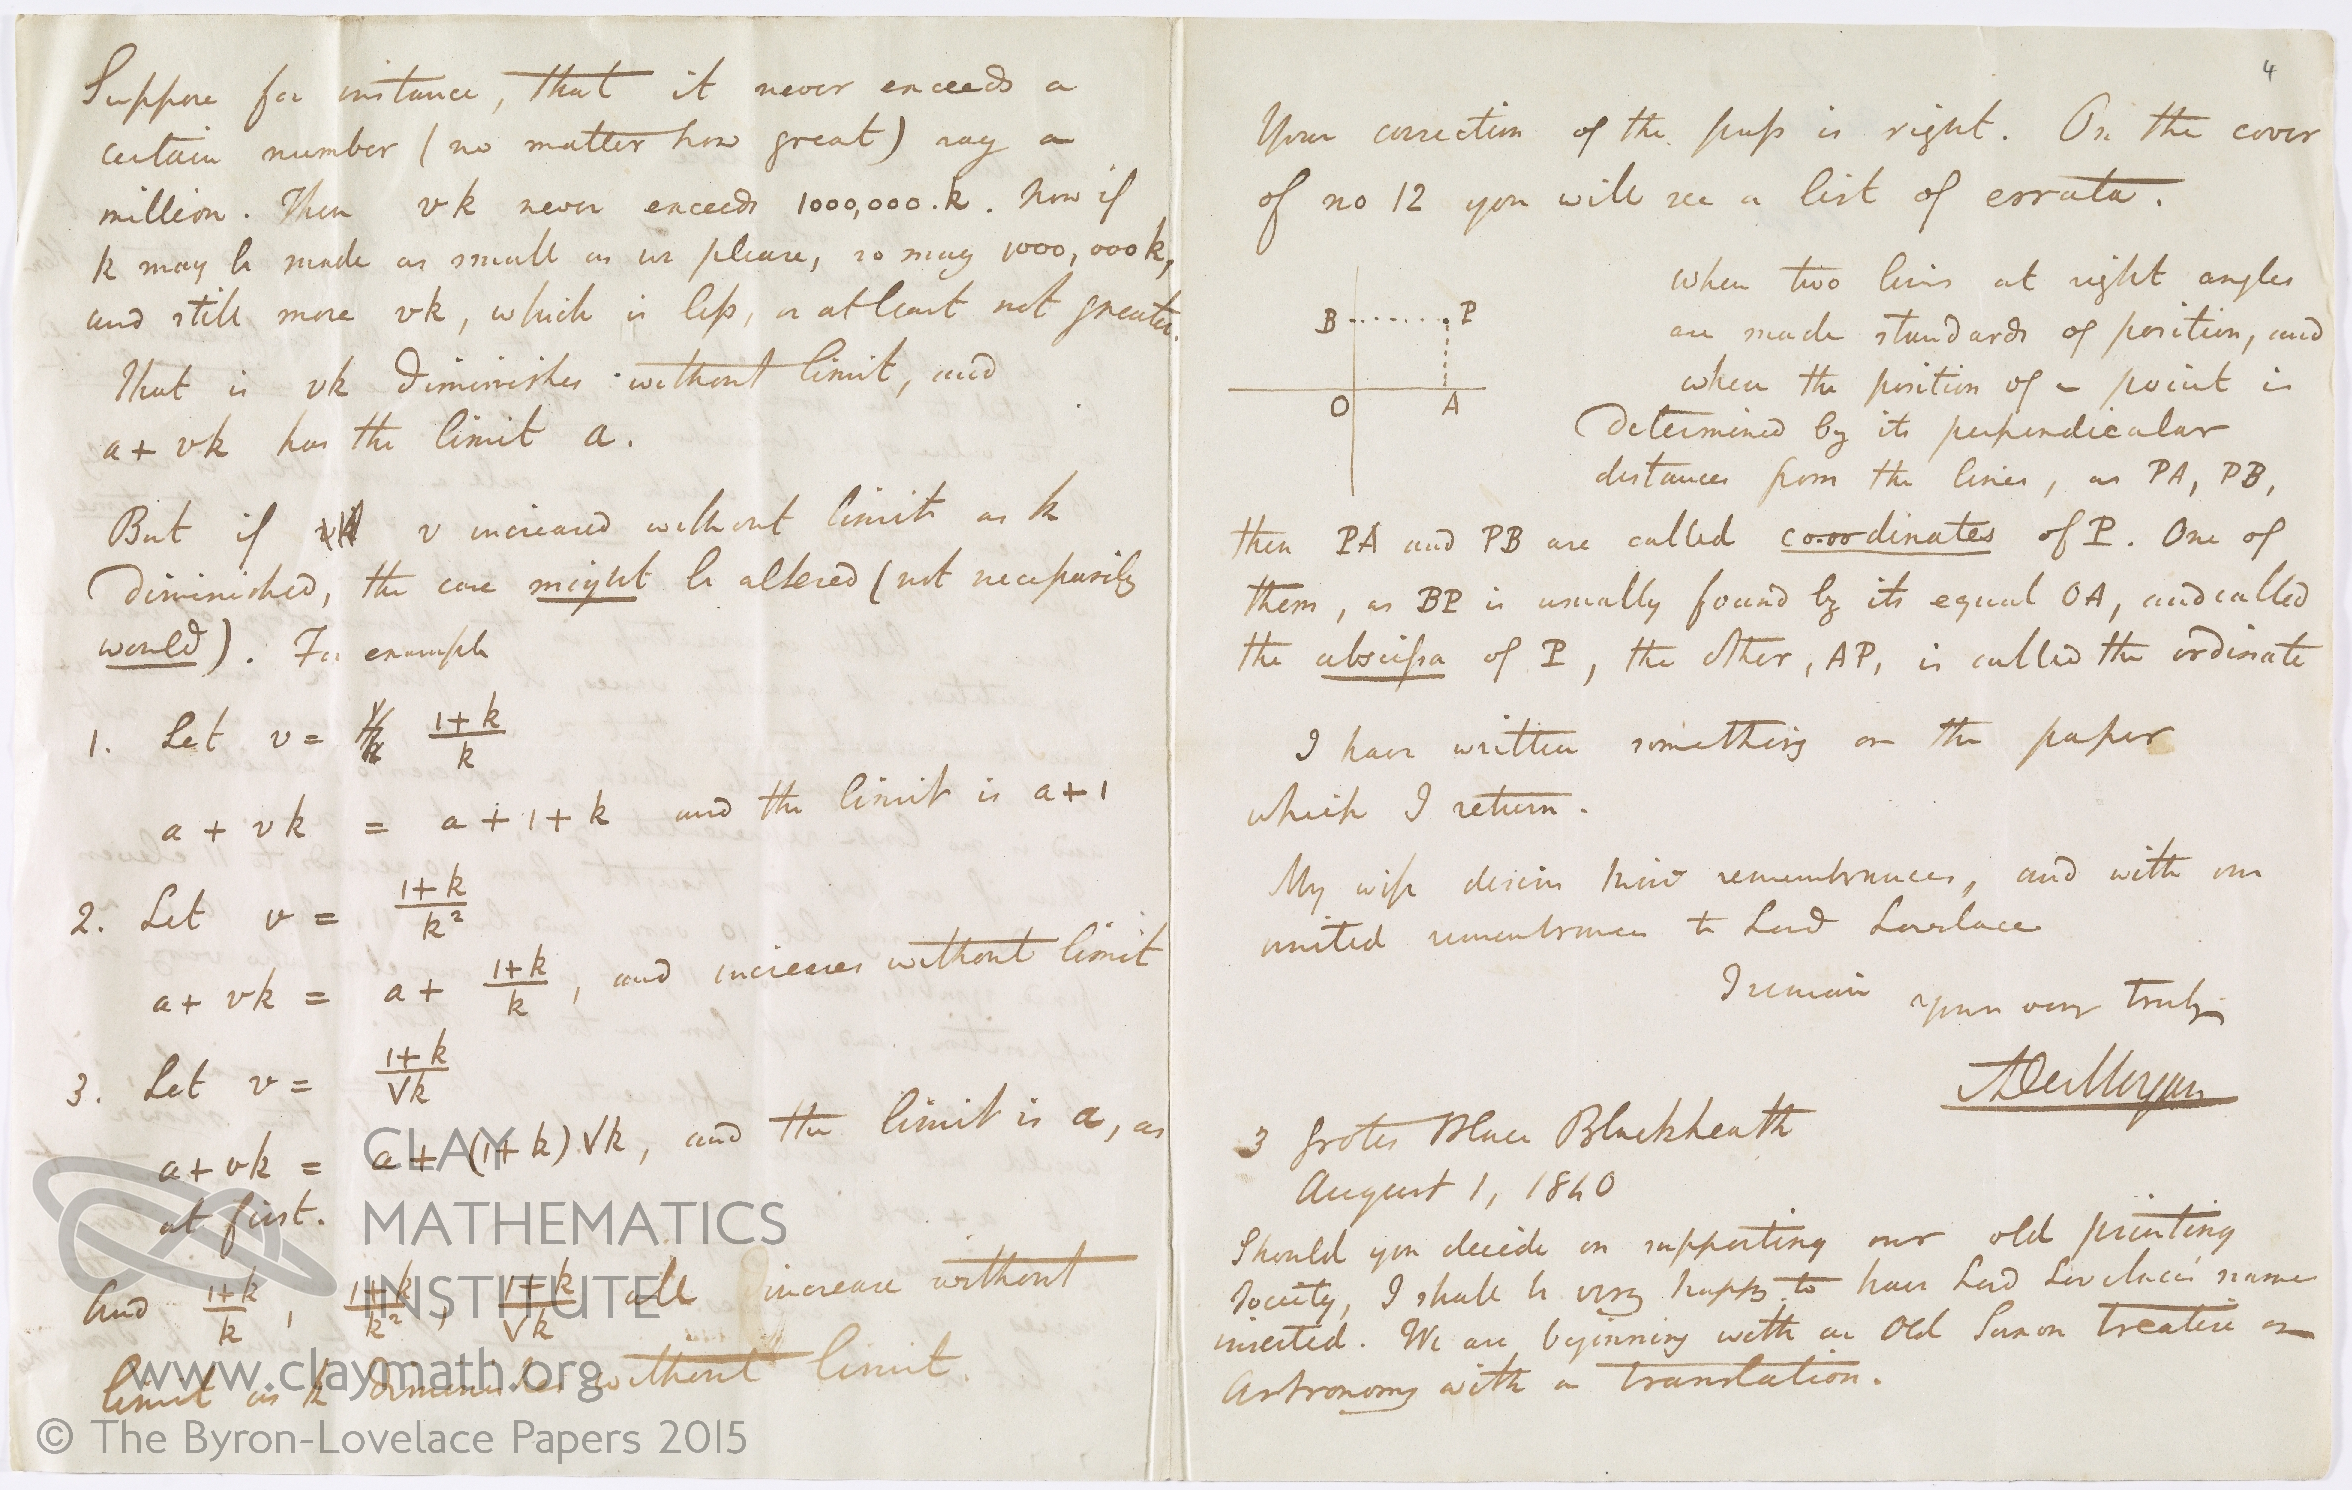 Suppose for instance, that it never exceeds a
certain number (no matter how great) say a
million. Then vk never exceeds 1000,000.k. Now if
k may be made as small as we please, so may 1000,000k,
and still more vk, which is less, or at least not greater.
That is vk diminishes without limit, and
a + vk has the limit a.
But if v increased without limit as k
diminished, the case might be altered (not necessarily
would). For example
1. Let v = (1+k)/k
a + vk = a + 1 + k and the limit is a+1
2. Let v = (1+k)/k²
a + vk = a + (1+k)/k, and increases without limit
3. Let v = (1+k)/√k
a + vk = a + (1+k)√k, and the limit is a, as
at first.
And (1+k)/k, (1+k)/k², (1+k)/√k all increase without
limit as k diminishes without limit.
CLAY
MATHEMATICS
INSTITUTE
www.claymath.org
© The Byron-Lovelace Papers 2015
4
Your correction of the press is right. On the cover
of no 12 you will see a list of errata.
When two lines at right angles
are made standards of position, and
when the position of a point is
determined by its perpendicular
distances from the lines, as PA, PB,
B P
O A
then PA and PB are called coordinates of P. One of
them, as BP is usually found by its equal OA, and called
the abscissa of P, the other, AP, is called the ordinate
I have written something on the paper
which I return.
My wife desires kind remembrances, and with our
united remembrances to Lord Lovelace
I remain yours very truly
ADeMorgan
3 Grotes Place Blackheath
August 1, 1840
Should you decide on supporting our old printing
Society, I shall be very happy to have Lord Lovelace's name
inserted. We are beginning with an Old Saxon treatise on
Astronomy with a translation.